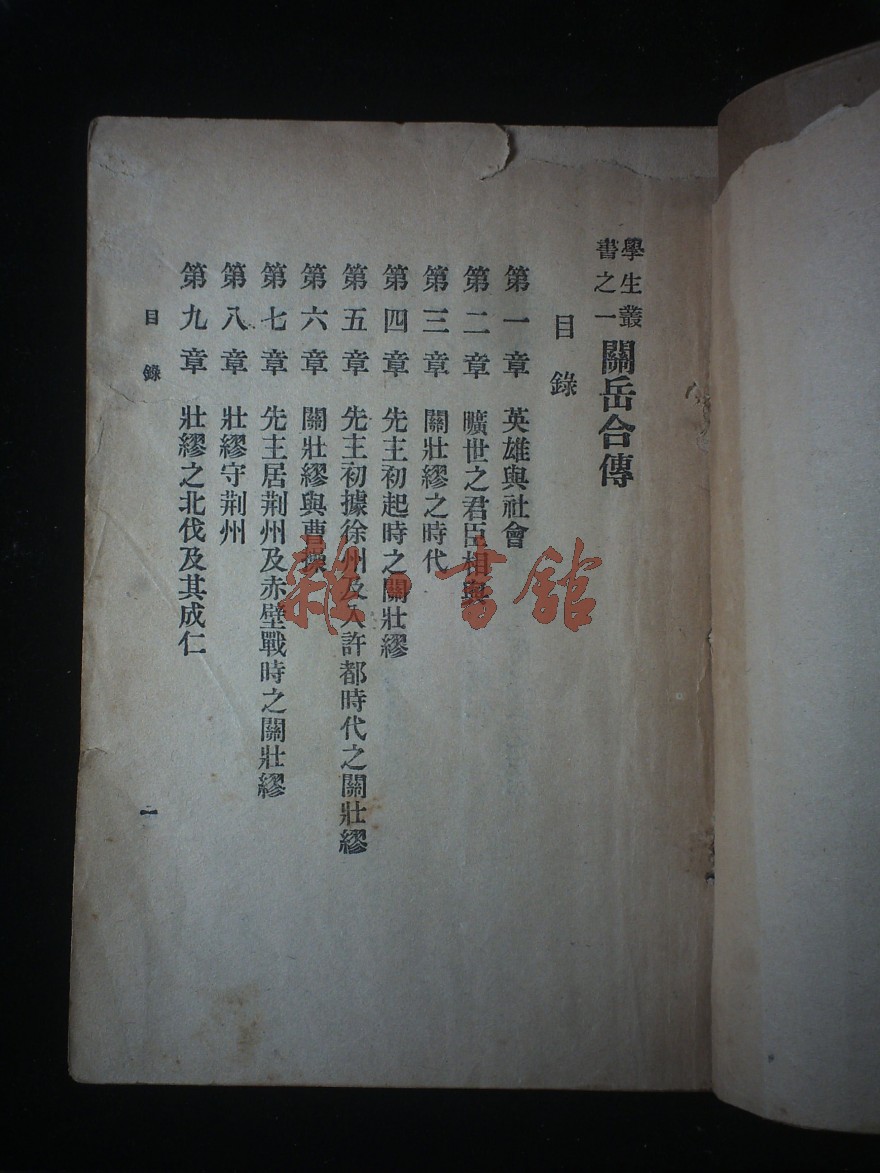 學生叢
書之一
關岳合傳
目錄
第一章 英雄與社會
第二章 曠世之君臣相與
第三章 關壯繆之時代
第四章 先主初起時之關壯繆
第五章 先主初據徐州及入許都時代之關壯繆
第六章 關壯繆與曹操
第七章 先主居荆州及赤壁戰時之關壯繆
第八章 壯繆守荆州
第九章 壯繆之北伐及其成仁
目錄
一
雜·書館